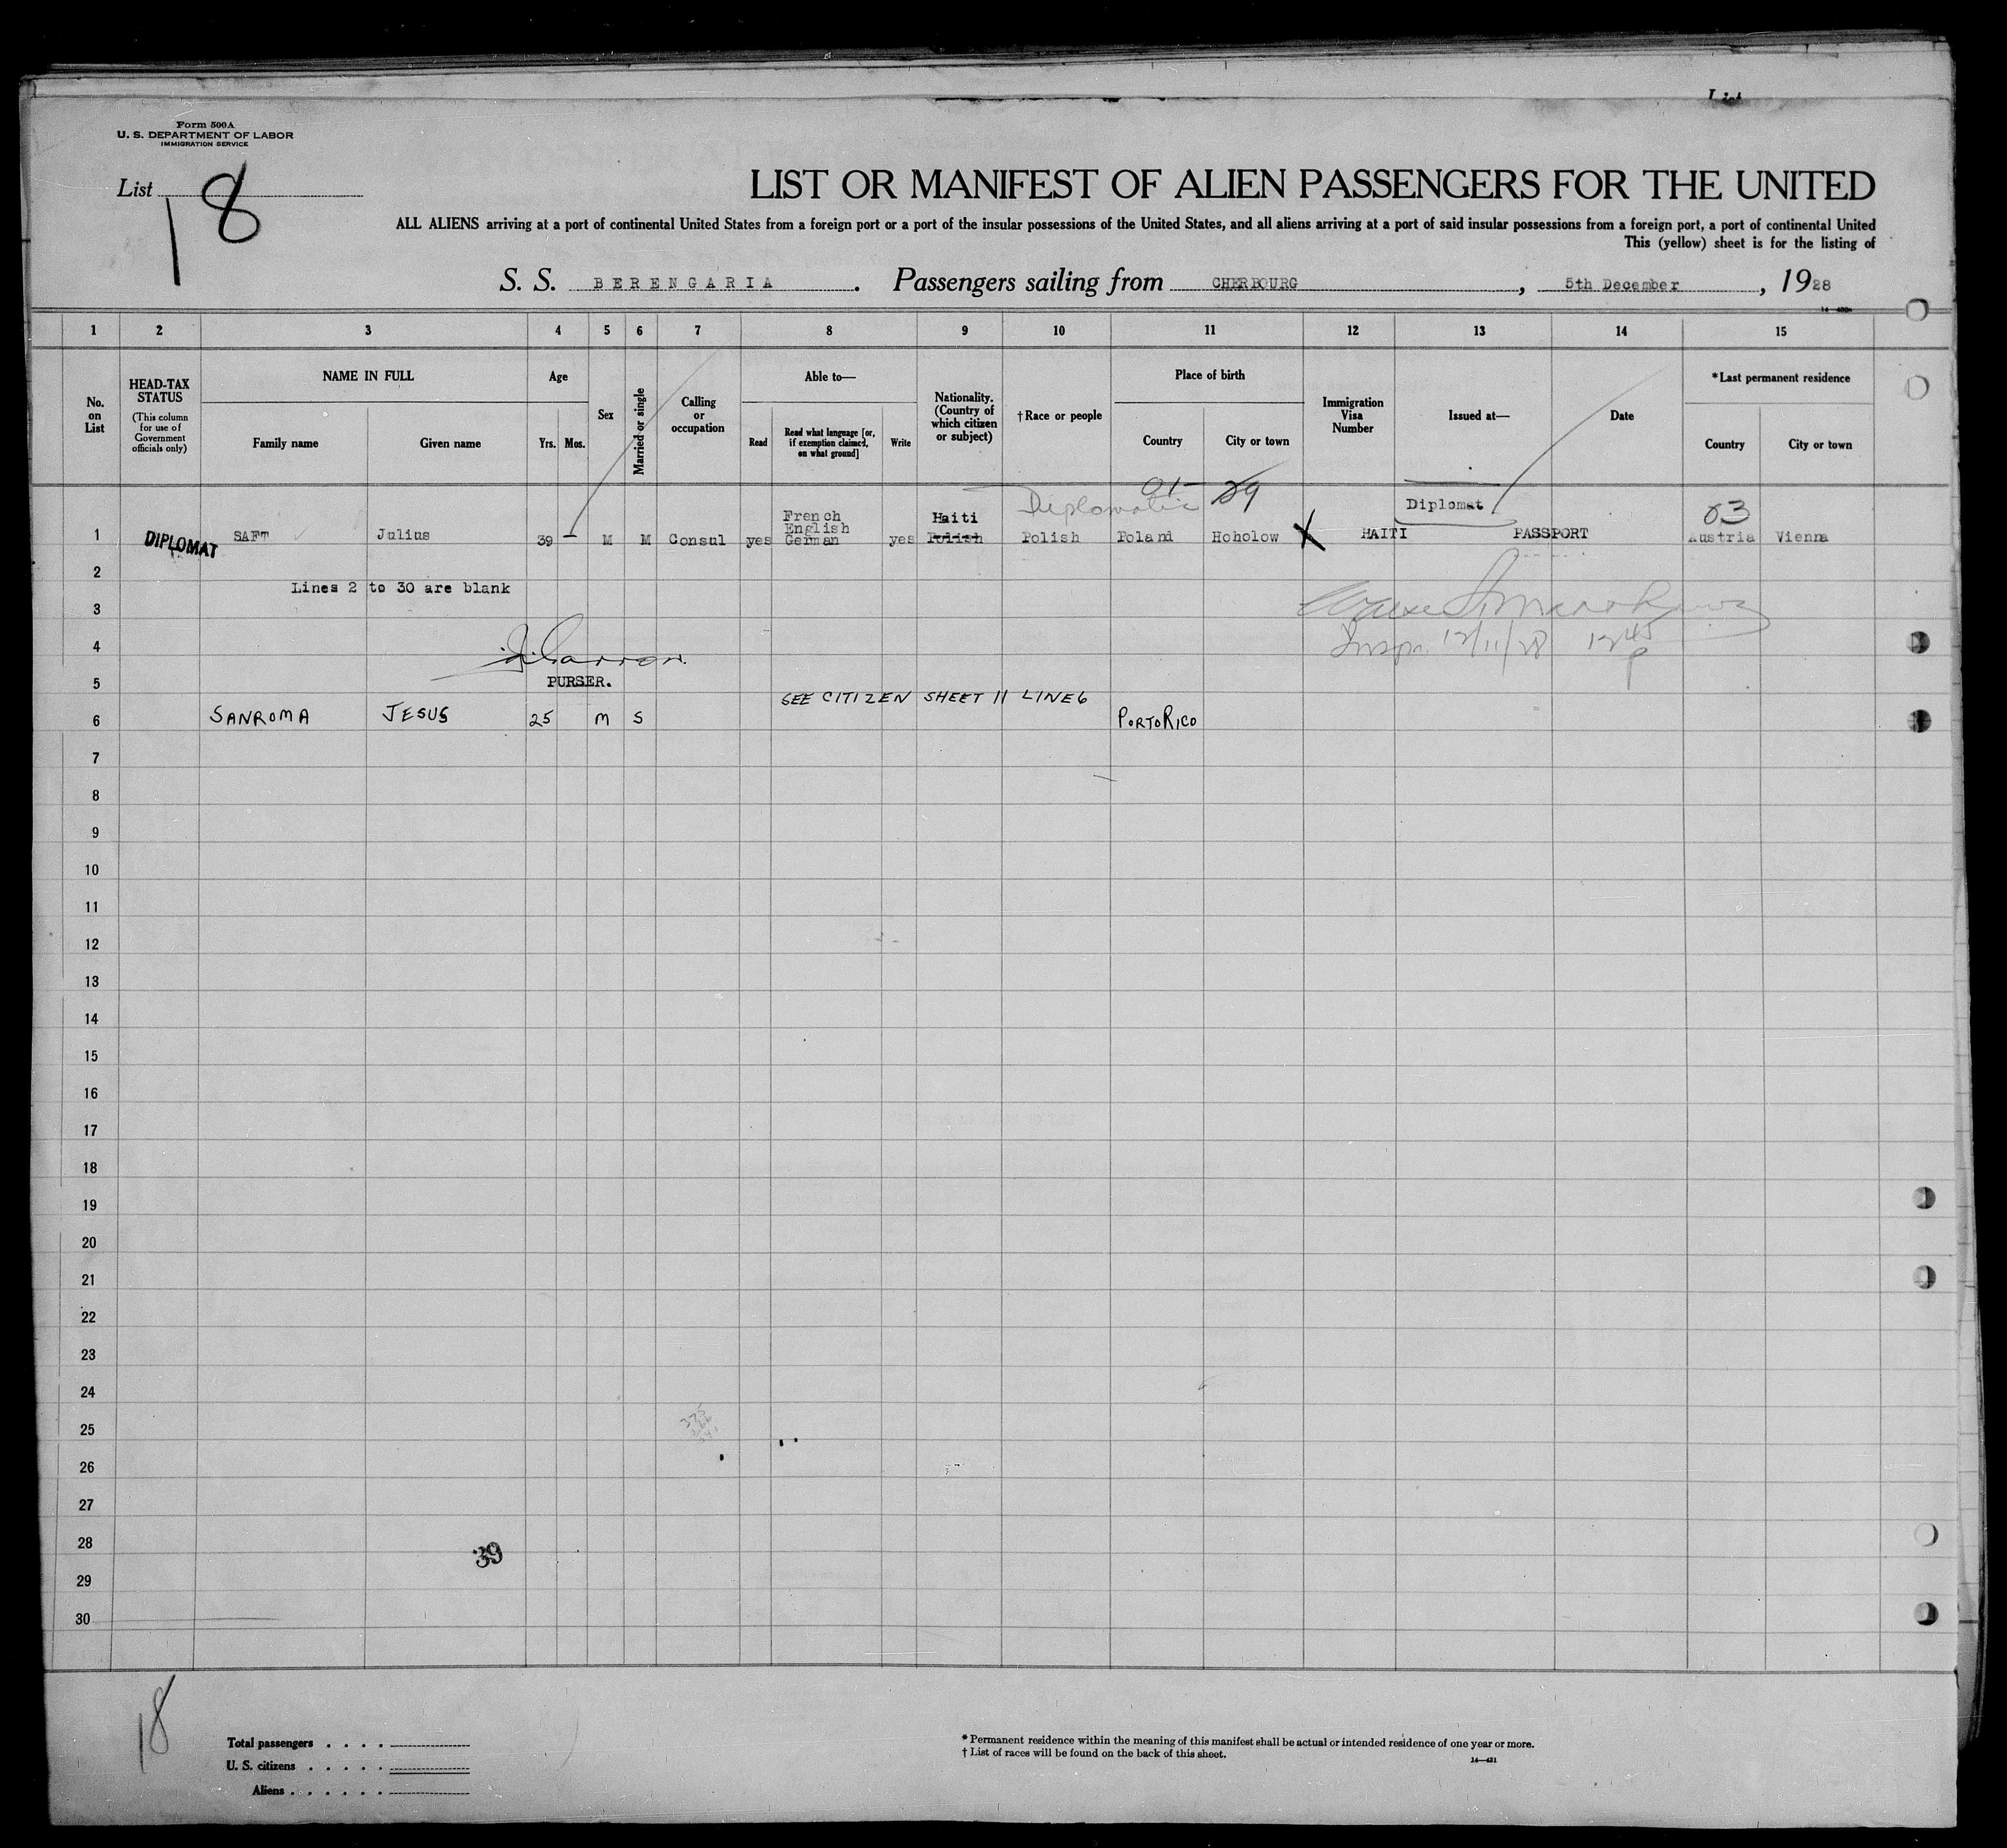 Form 500A
U. S. DEPARTMENT OF LABOR
IMMIGRATION SERVICE
List 18
LIST OR MANIFEST OF ALIEN PASSENGERS FOR THE UNITED
ALL ALIENS arriving at a port of continental United States from a foreign port or a port of the insular possessions of the United States, and all aliens arriving at a port of said insular possessions from a foreign port, a port of continental United
This (yellow) sheet is for the listing of
S. S. BERENGARIA. Passengers sailing from CHERBOURG, 5th December, 1928
1 2 3 4 5 6 7 8 9 10 11 12 13 14 15
No. on List
HEAD-TAX STATUS
(This column for use of Government officials only)
NAME IN FULL
Family name Given name
Age
Yrs. Mos.
Sex
Married or single
Calling or occupation
Able to—
Read
Read what language [or, if exemption claimed, on what ground]
Write
Nationality. (Country of which citizen or subject)
†Race or people
Place of birth
Country City or town
Immigration Visa Number
Issued at—
Date
*Last permanent residence
Country City or town
01 29
Diplomatic
Diplomat
03
1 DIPLOMAT SAFT Julius 39 – M M Consul yes French English German yes Haiti Polish Polish Poland Hoholow X HAITI PASSPORT Austria Vienna
2
Lines 2 to 30 are blank
3
4
Inspr. 12/11/28 12 45 P
5
PURSER.
SEE CITIZEN SHEET 11 LINE 6
6 SANROMA JESUS 25 M S PORTO RICO
7
8
9
10
11
12
13
14
15
16
17
18
19
20
21
22
23
24
25
26
27
28
39
29
30
18
Total passengers
U. S. citizens
Aliens
* Permanent residence within the meaning of this manifest shall be actual or intended residence of one year or more.
† List of races will be found on the back of this sheet.
14—431